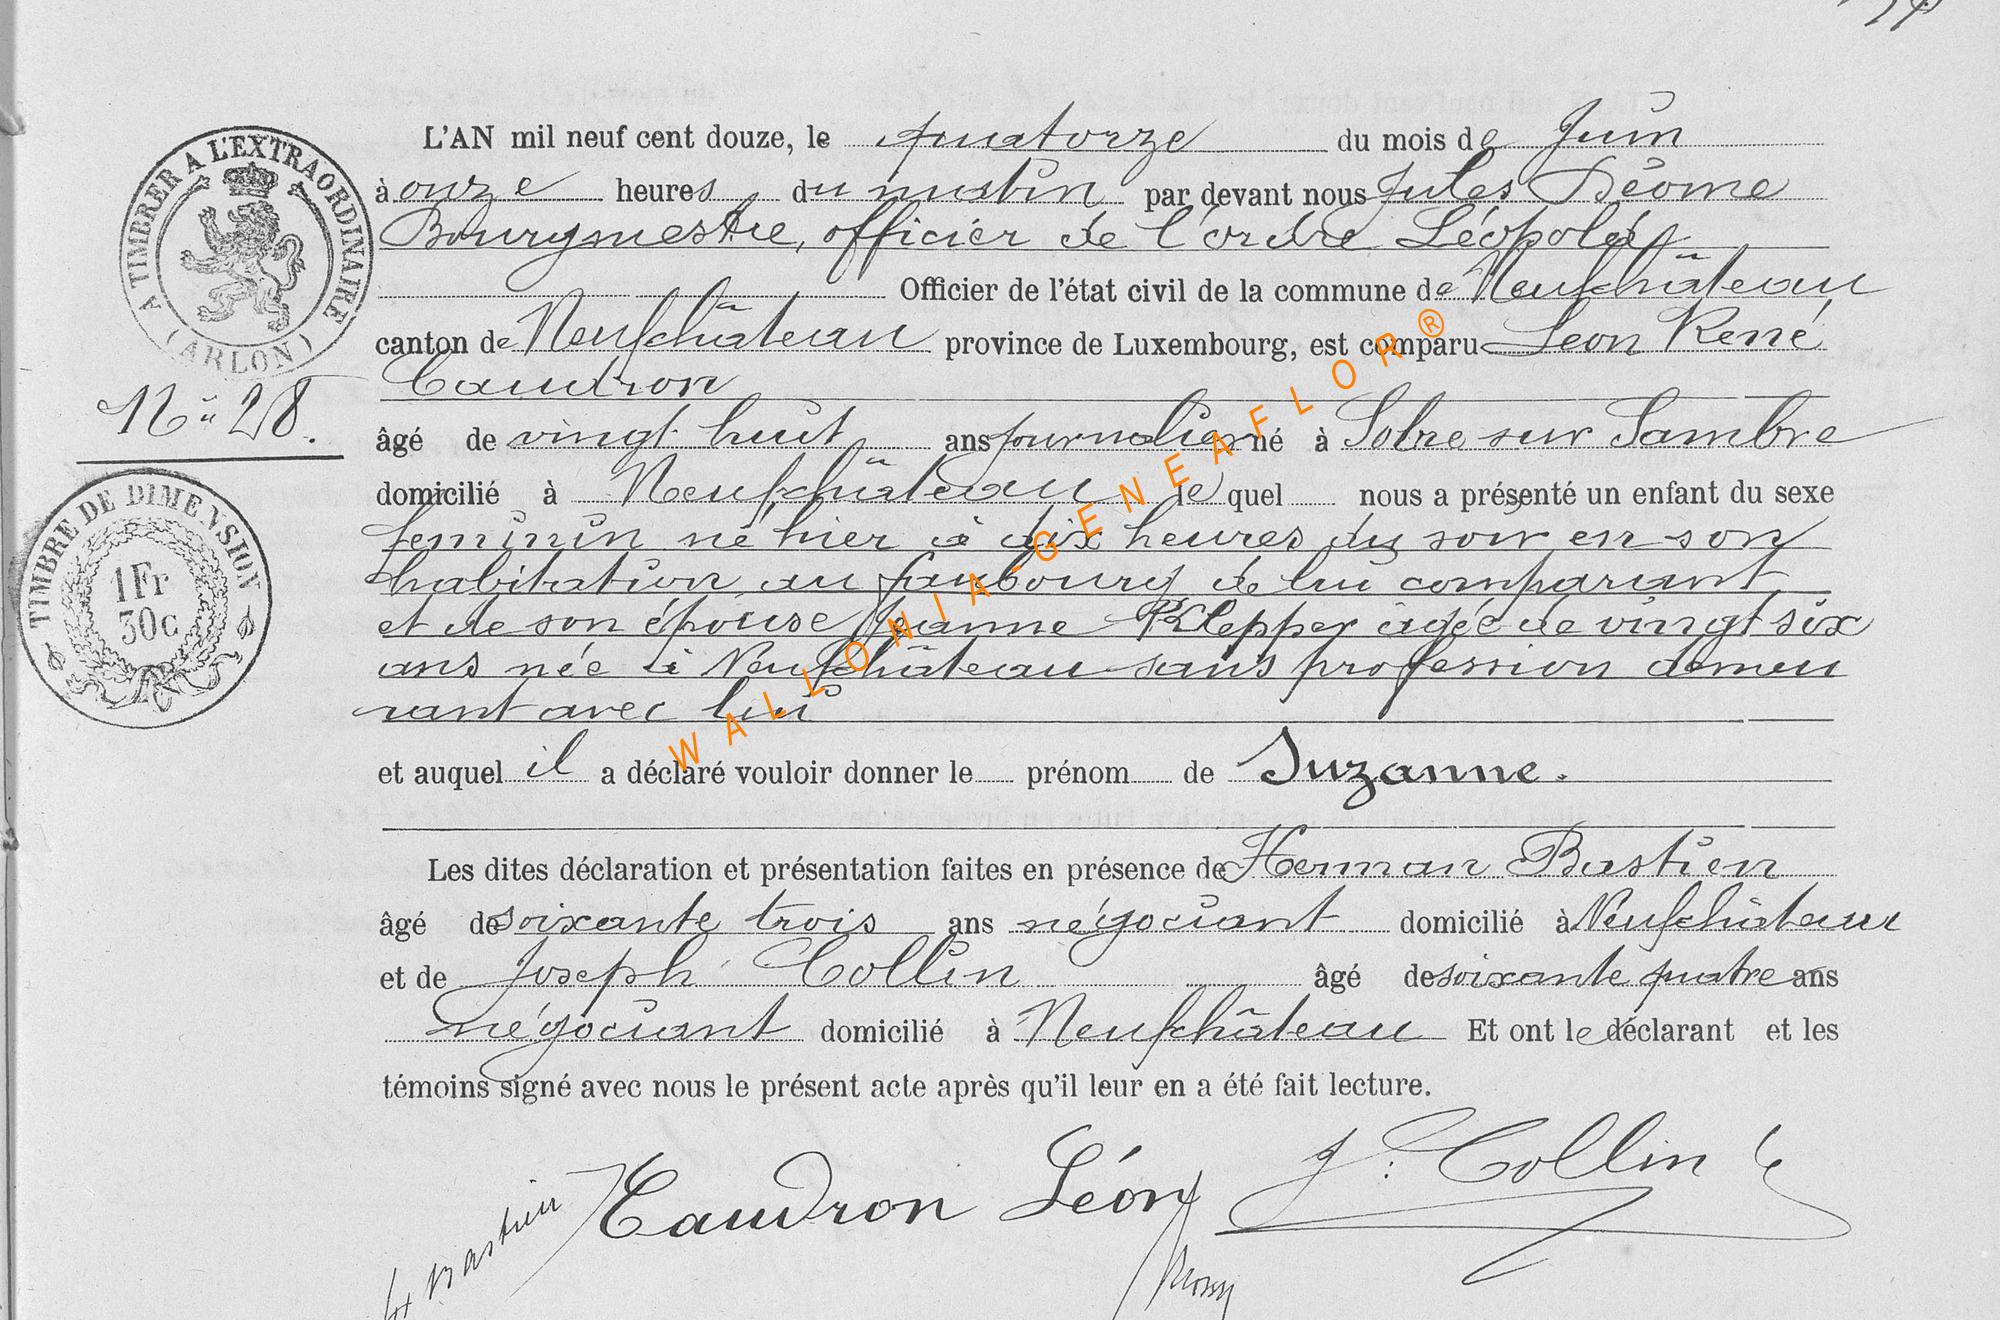 A TIMBRER A L'EXTRAORDINAIRE
(ARLON)
N° 28.
TIMBRE DE DIMENSION
1Fr
30c
L'AN mil neuf cent douze, le quatorze du mois de Juin
à onze heures du matin par devant nous Jules Déome
Bourgmestre, officier de l'ordre Léopold,
Officier de l'état civil de la commune de Neufchâteau
canton de Neufchâteau province de Luxembourg, est comparu Léon René
Caudron
âgé de vingt huit ans journalier né à Solre sur Sambre
domicilié à Neufchâteau lequel nous a présenté un enfant du sexe
feminin né hier à dix heures du soir en son
habitation au faubourg de lui comparant
et de son épouse Jeanne Klepper agée de vingt six
ans née à Neufchâteau sans profession demeu
rant avec lui
et auquel il a déclaré vouloir donner le prénom de Suzanne.
Les dites déclaration et présentation faites en présence de Herman Bastien
âgé de soixante trois ans négociant domicilié à Neufchâteau
et de Joseph Collin âgé de soixante quatre ans
négociant domicilié à Neufchâteau Et ont le déclarant et les
témoins signé avec nous le présent acte après qu'il leur en a été fait lecture.
H Bastien Caudron Léon J. Collin
WALLONIA-GENEAFLOR®